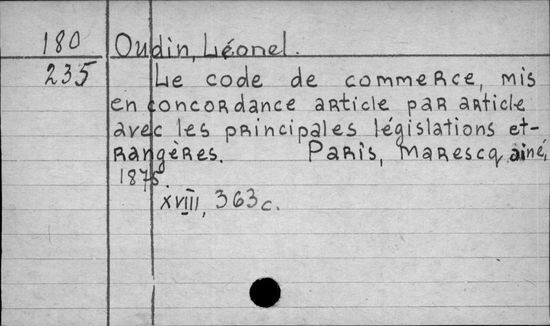 180 Oudin, Léonel.
235 Le code de commerce, mis
en concordance article par article
avec les principales législations et-
rangères. Paris, Marescq ainé,
1875.
XVIII, 363c.